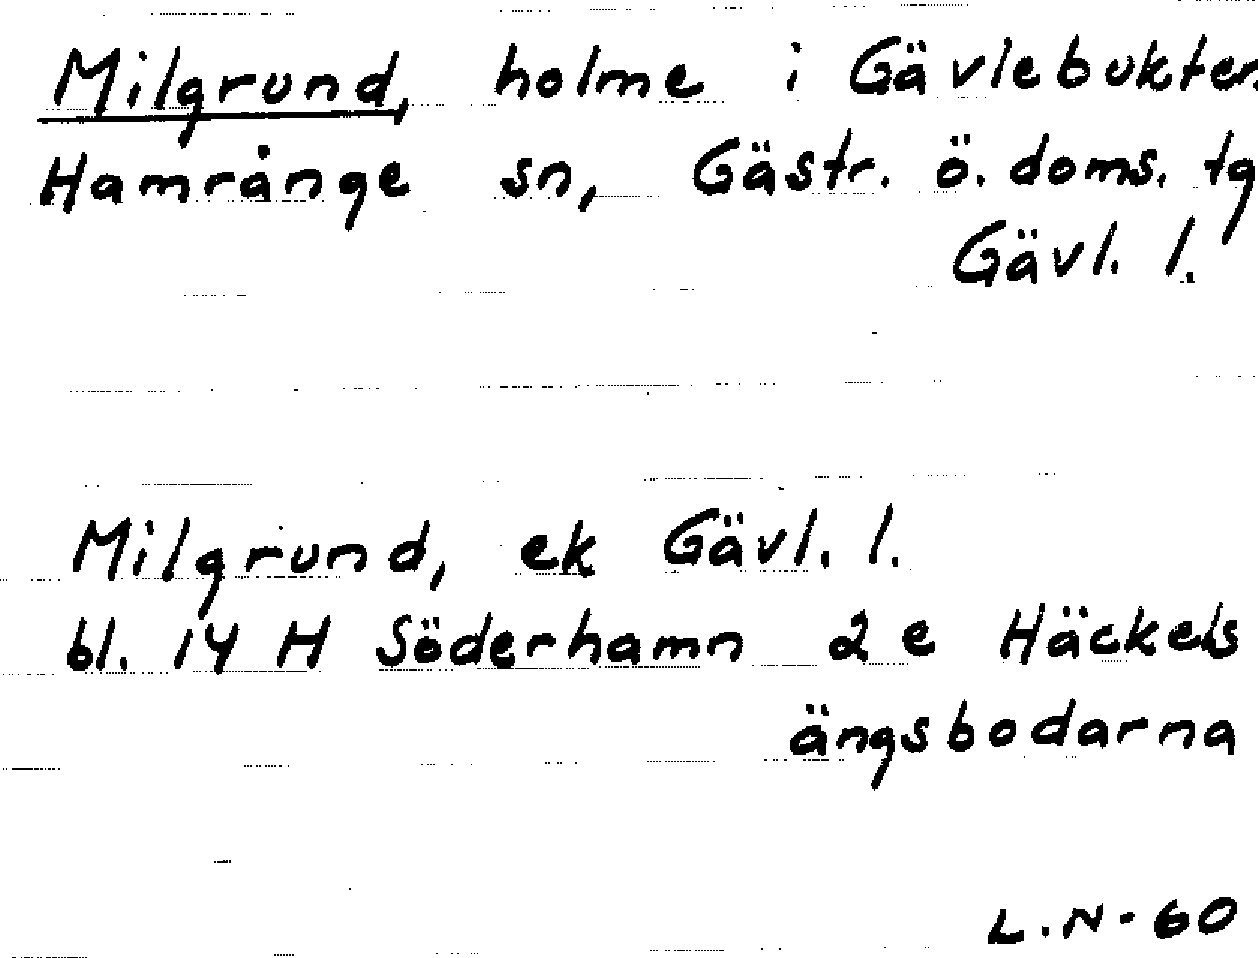 Milgrund, holme i Gävlebukten
Hamrånge sn, Gästr. ö. doms. tg
Gävl. l.
Milgrund, ek Gävl. l.
bl. 14 H Söderhamn 2 e Häckels
ängsbodarna
L.N-60